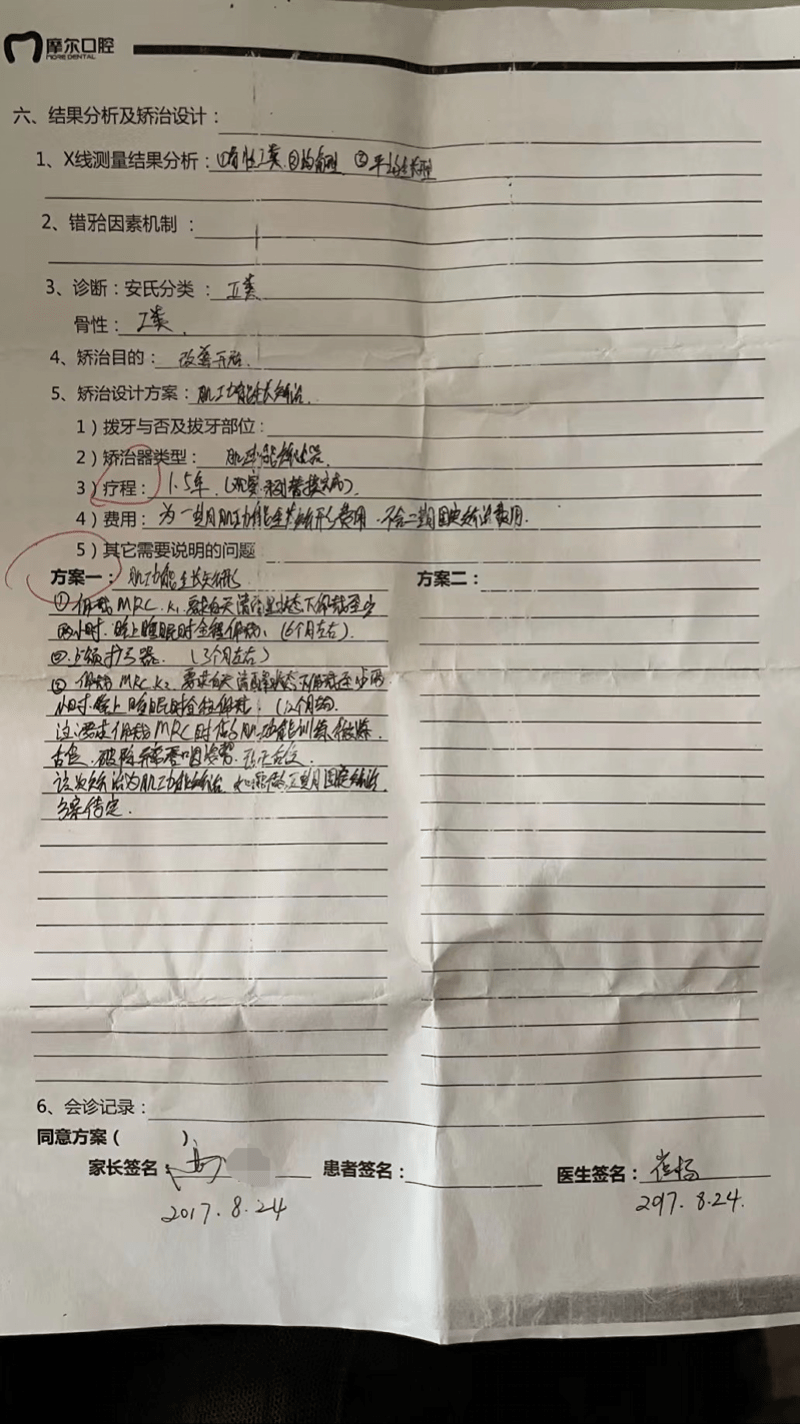 摩尔口腔
MORE DENTAL
六、结果分析及矫治设计：
1、X线测量结果分析：①骨性I类 ②均角型 ③平均生长型
2、错𬌗因素机制：
3、诊断：安氏分类：II类
骨性：I类.
4、矫治目的：改善开𬌗.
5、矫治设计方案：肌功能生长矫治.
1）拨牙与否及拔牙部位：
2）矫治器类型：肌功能矫治器.
3）疗程：1.5年.（观察乳牙替换完成）
4）费用：为一期肌功能生长矫形费用.不含二期固定矫治费用.
5）其它需要说明的问题
方案一：肌功能生长矫形
①佩戴MRC.K1.要求白天清醒状态下佩戴至少
两小时.晚上睡眠时全程佩戴.（6个月左右）.
②上颌扩弓器.（3个月左右）
③佩戴MRC.K2.要求白天清醒状态下佩戴至少两
小时.晚上睡眠时全程佩戴.（12个月）
注:要求佩戴MRC时配合肌功能训练
破除异常吞咽
该次矫治为肌功能矫治.如需做二期固定矫治.
方案待定.
方案二：
6、会诊记录：
同意方案（ ）、
家长签名：
患者签名：
医生签名：崔杨
2017.8.24
2017.8.24.